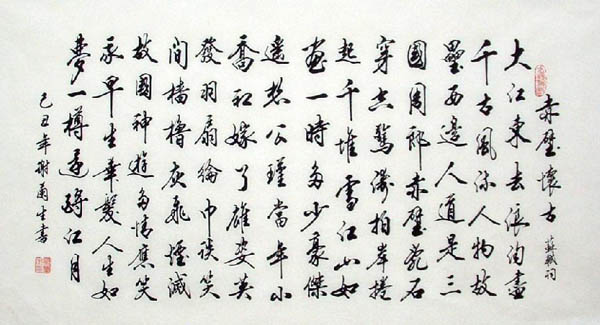 赤壁懷古
蘇軾詞
大江東去浪淘盡
千古風流人物故
壘西邊人道是三
國周郎赤壁亂石
穿空驚濤拍岸捲
起千堆雪江山如
畫一時多少豪傑
遙想公瑾當年小
喬初嫁了雄姿英
發羽扇綸巾談笑
間檣櫓灰飛煙滅
故國神遊多情應笑
我早生華髮人生如
夢一樽還酹江月
己丑年謝生書